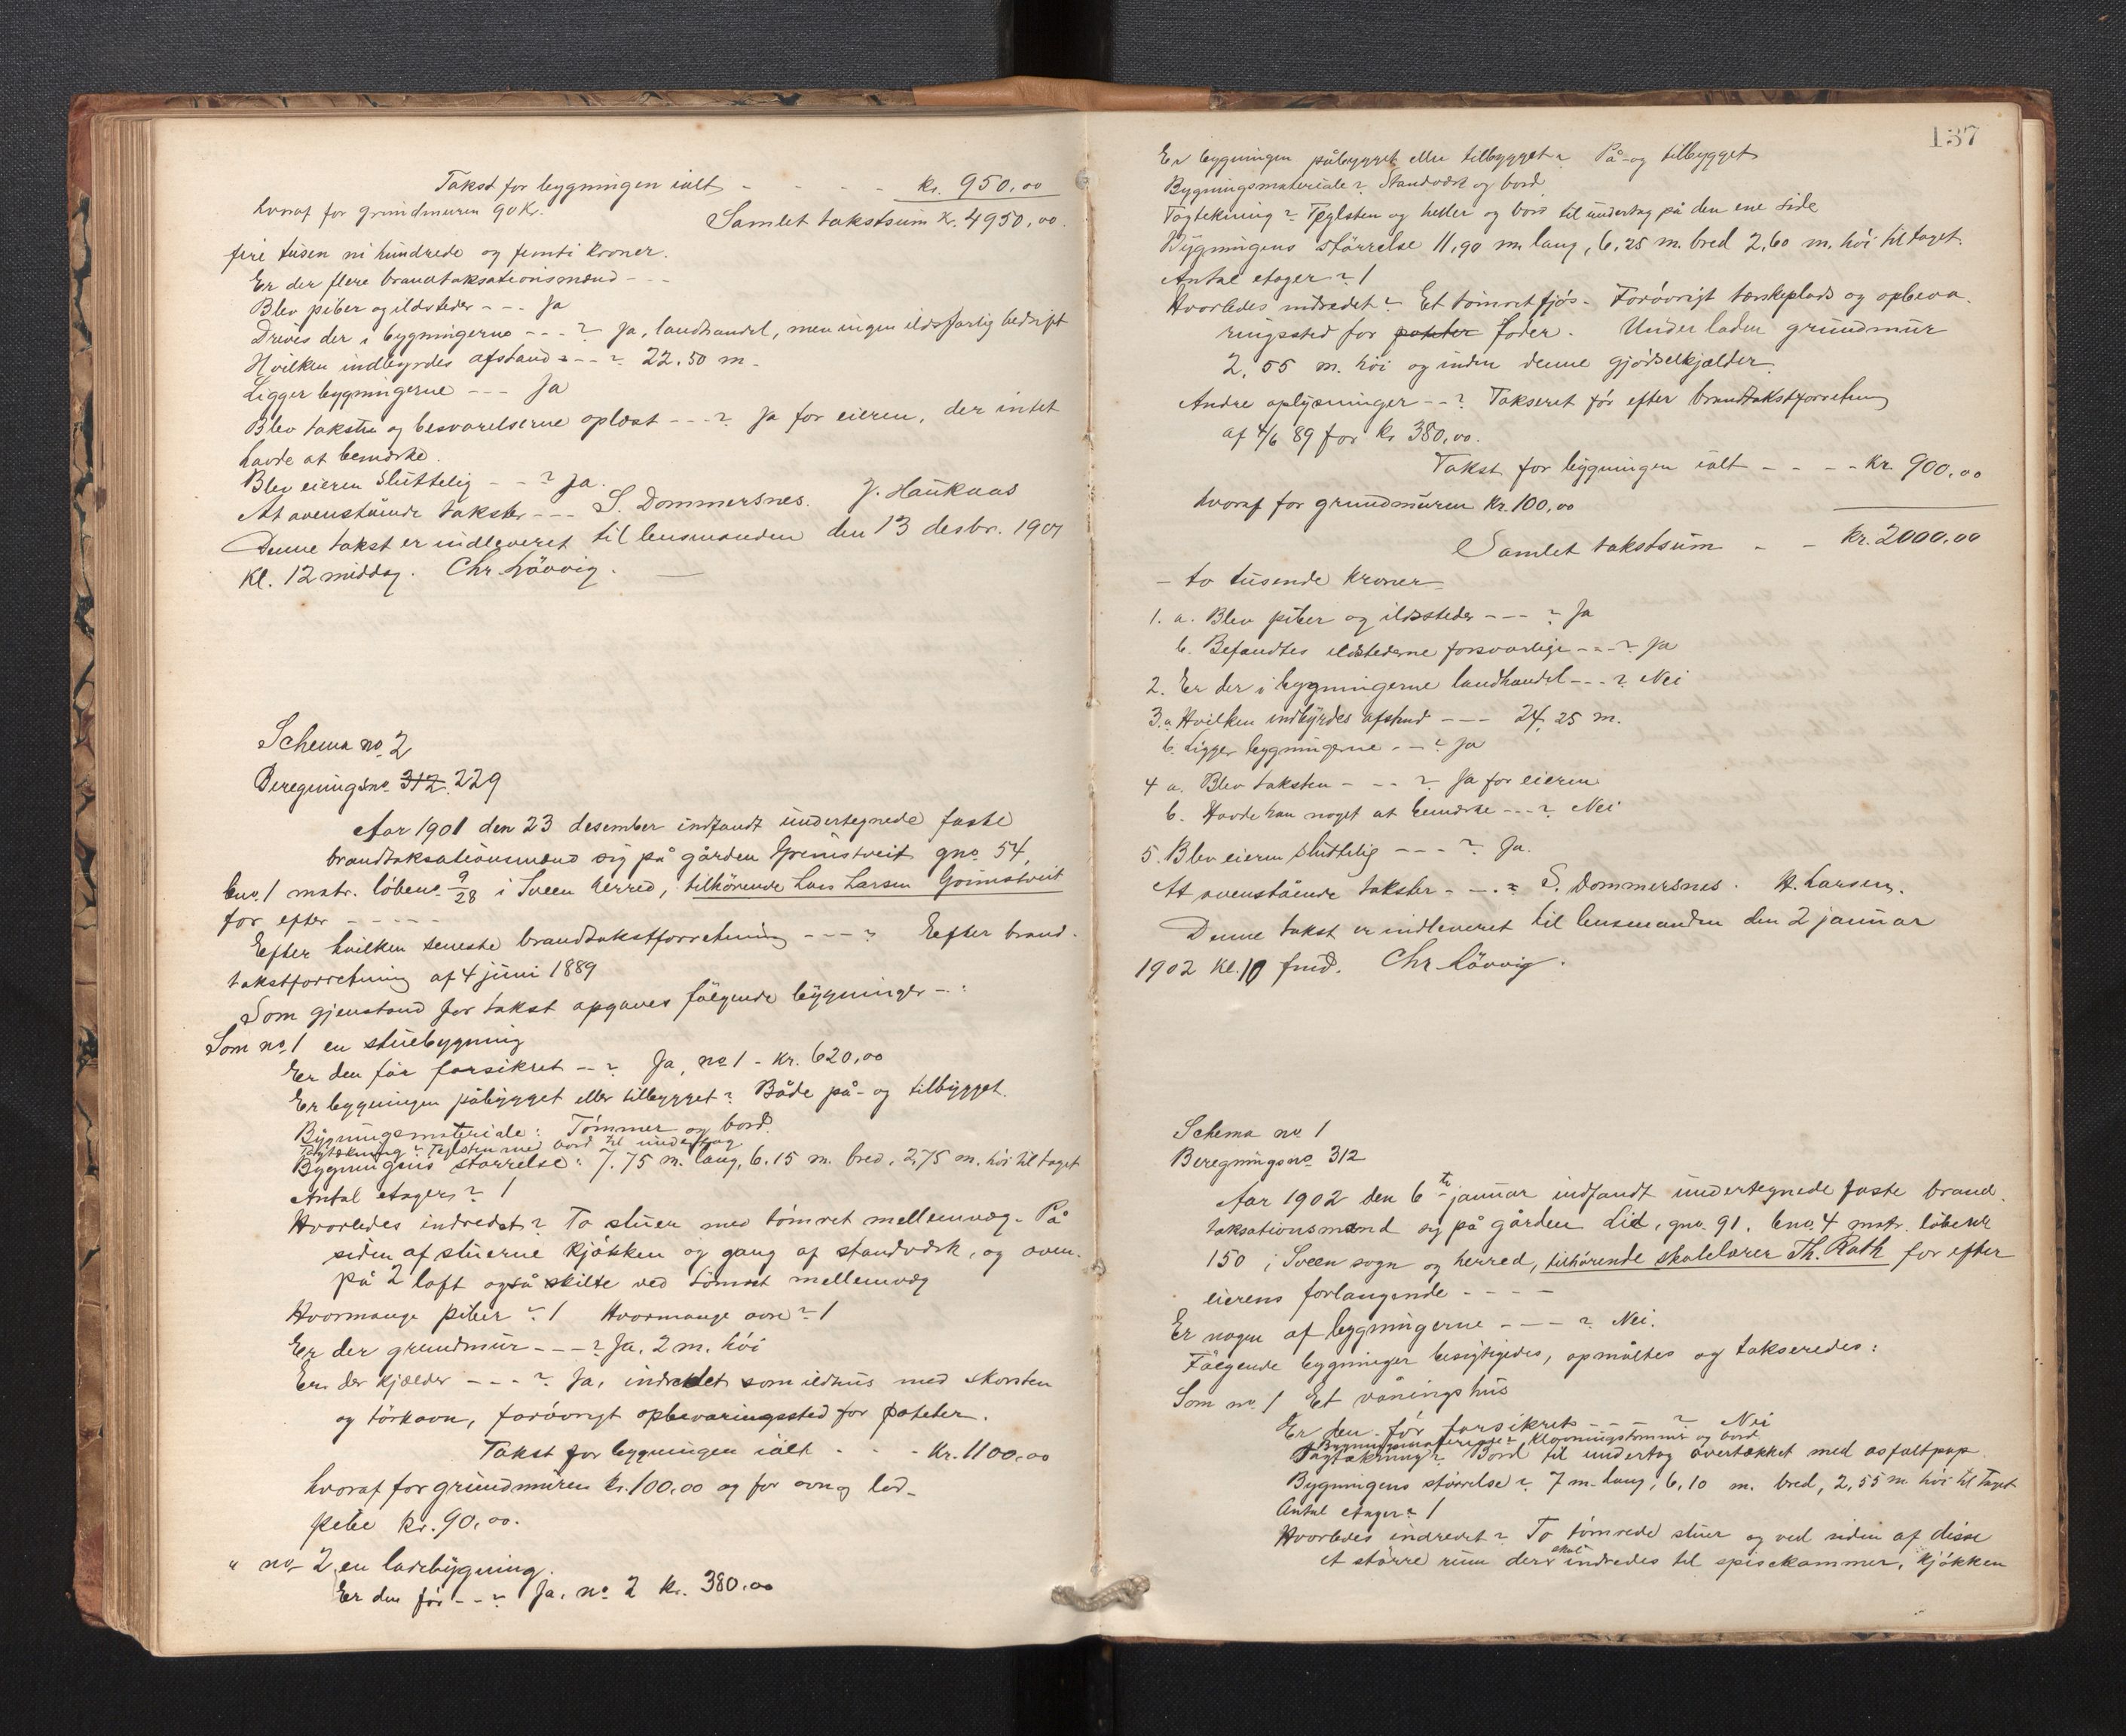 Takst for bygningen ialt - - - - kr. 950,00
hvoraf for grundmuren 90 Kr.
Samlet takstsum Kr. 4950,00.
fire tusen ni hundrede og femti kroner.
Er der flere brandtaksationsmænd - - -
Blev piber og ildsteder - - - Ja
Drives der i bygningerne - - - ? Ja, landhandel, men ingen ildsfarlig bedrift
Hvilken indbyrdes afstand - - - ? 22,50 m.
Ligger bygningerne - - - Ja
Blev taksten og besvarelserne oplæst - - - ? Ja for eieren, der intet
havde at bemærke.
Blev eieren sluttelig - - ? Ja.
At ovenstående takster - - - S. Dommersnes. J. Haukaas
Denne takst er indleveret til lensmanden den 13 desbr. 1901
Kl. 12 middag. Chr. Løvvig.
Schema no. 2
Beregningsno. 312. 229
Aar 1901 den 23 desember indfandt undertegnede faste
brandtaksationsmænd sig på gården Grimstveit gno. 54,
bno. 1 matr. løbeno. 9/28 i Sveen herred, tilhørende Lars Larsen Grimstveit
for efter - - - - -
Efter hvilken seneste brandtakstforretning - - - ? Eefter brand-
takstforretning af 4 juni 1889
Som gjenstand for takst opgaves følgende bygninger - :
Som no. 1 en stuebygning
Er den før forsikret - - ? Ja, no 1 - Kr. 620,00
Er bygningen påbygget eller tilbygget? Både på- og tilbygget.
Bygningsmateriale: Tømmer og bord.
Tagtækning? Teglsten med bord til undertag
Bygningens størrelse: 7,75 m. lang, 6,15 m. bred, 2,75 m. høi til taget
Antal etager? 1
Hvorledes indredet? To stuer med tømret mellemvæg. På
siden af stuerne kjøkken og gang af standværk, og oven-
på 2 loft også skilte ved tømret mellemvæg
Hvormange piber? 1 Hvormange ovne? 1
Er der grundmur - - - ? Ja, 2 m. høi
Er der kjælder - - - ? Ja, indredet som ildhus med skorsten
og tørkovn, forøvrigt opbevaringssted for poteter.
Takst for bygningen ialt - - - Kr. 1100,00
hvoraf for grundmuren kr. 100,00 og for ovn og led-
pibe kr. 90,00.
" no. 2 en ladebygning.
Er den før - - ? Ja, no. 2 kr. 380,00
137
Er bygningen påbygget eller tilbygget? På- og tilbygget
Bygningsmateriale? Standværk og bord
Tagtekning? Teglsten og heller og bord til undertag på den ene side
Bygningens størrelse 11,90 m. lang, 6,25 m. bred 2,60 m. høi til taget.
Antal etager? 1
Hvorledes indredet? Et tømret fjøs. Forøvrigt tærskeplads og opbeva-
ringssted for poteter foder. Under laden grundmur
2,55 m. høi og inden denne gjødselkjælder.
Andre oplysninger - - ? Takseret før efter brandtakstforretning
af 4/6 89 for kr 380,00.
Takst for bygningen ialt - - - - Kr. 900,00
hvoraf for grundmuren Kr. 100,00
Samlet takstsum - - kr. 2000,00
- to tusende kroner
1. a. Blev piber og ildssteder - - - ? Ja
b. Befandtes ildstederne forsvarlige - - - ? Ja
2. Er der i bygningerne landhandel - - - ? Nei
3. a. Hvilken indbyrdes afstand - - - 24,25 m.
b. Ligger bygningerne - - ? Ja
4 a. Blev taksten - - - ? Ja for eieren
b. Havde han noget at bemærke - - - ? Nei
5. Blev eieren sluttelig - - - ? Ja.
At ovenstående takster - - - S. Dommersnes. H. Larsen.
Denne takst er indleveret til lensmanden den 2 januar
1902 Kl. 10 fmd. Chr Løvvig.
Schema no 1
Beregningsno 312
Aar 1902 den 6te januar indfandt undertegnede faste brand-
taksationsmænd sig på gården Lid, gno. 91, bno. 4 matr. løbeno
150 i Sveen sogn og herred, tilhørende skolelærer Th. Rath for efter
eierens forlangende - - - -
Er nogen af bygningerne - - - ? Nei.
Følgende bygninger besigtigedes, opmåltes og takseredes:
Som no. 1 Et våningshus
Er den før forsikret - - - - ? Nei
Bygningsmateriale? Kløvningstømmer og bord
Tagtækning? Bord til undertag overtækket med asfaltpap
Bygningens størrelse? 7 m. lang, 6,10 m. bred, 2,55 m. høi til taget
Antal etager? 1
Hvorledes indredet? To tømrede stuer og ved siden af disse
et større rum der skal indredes til spisekammer, kjøkken